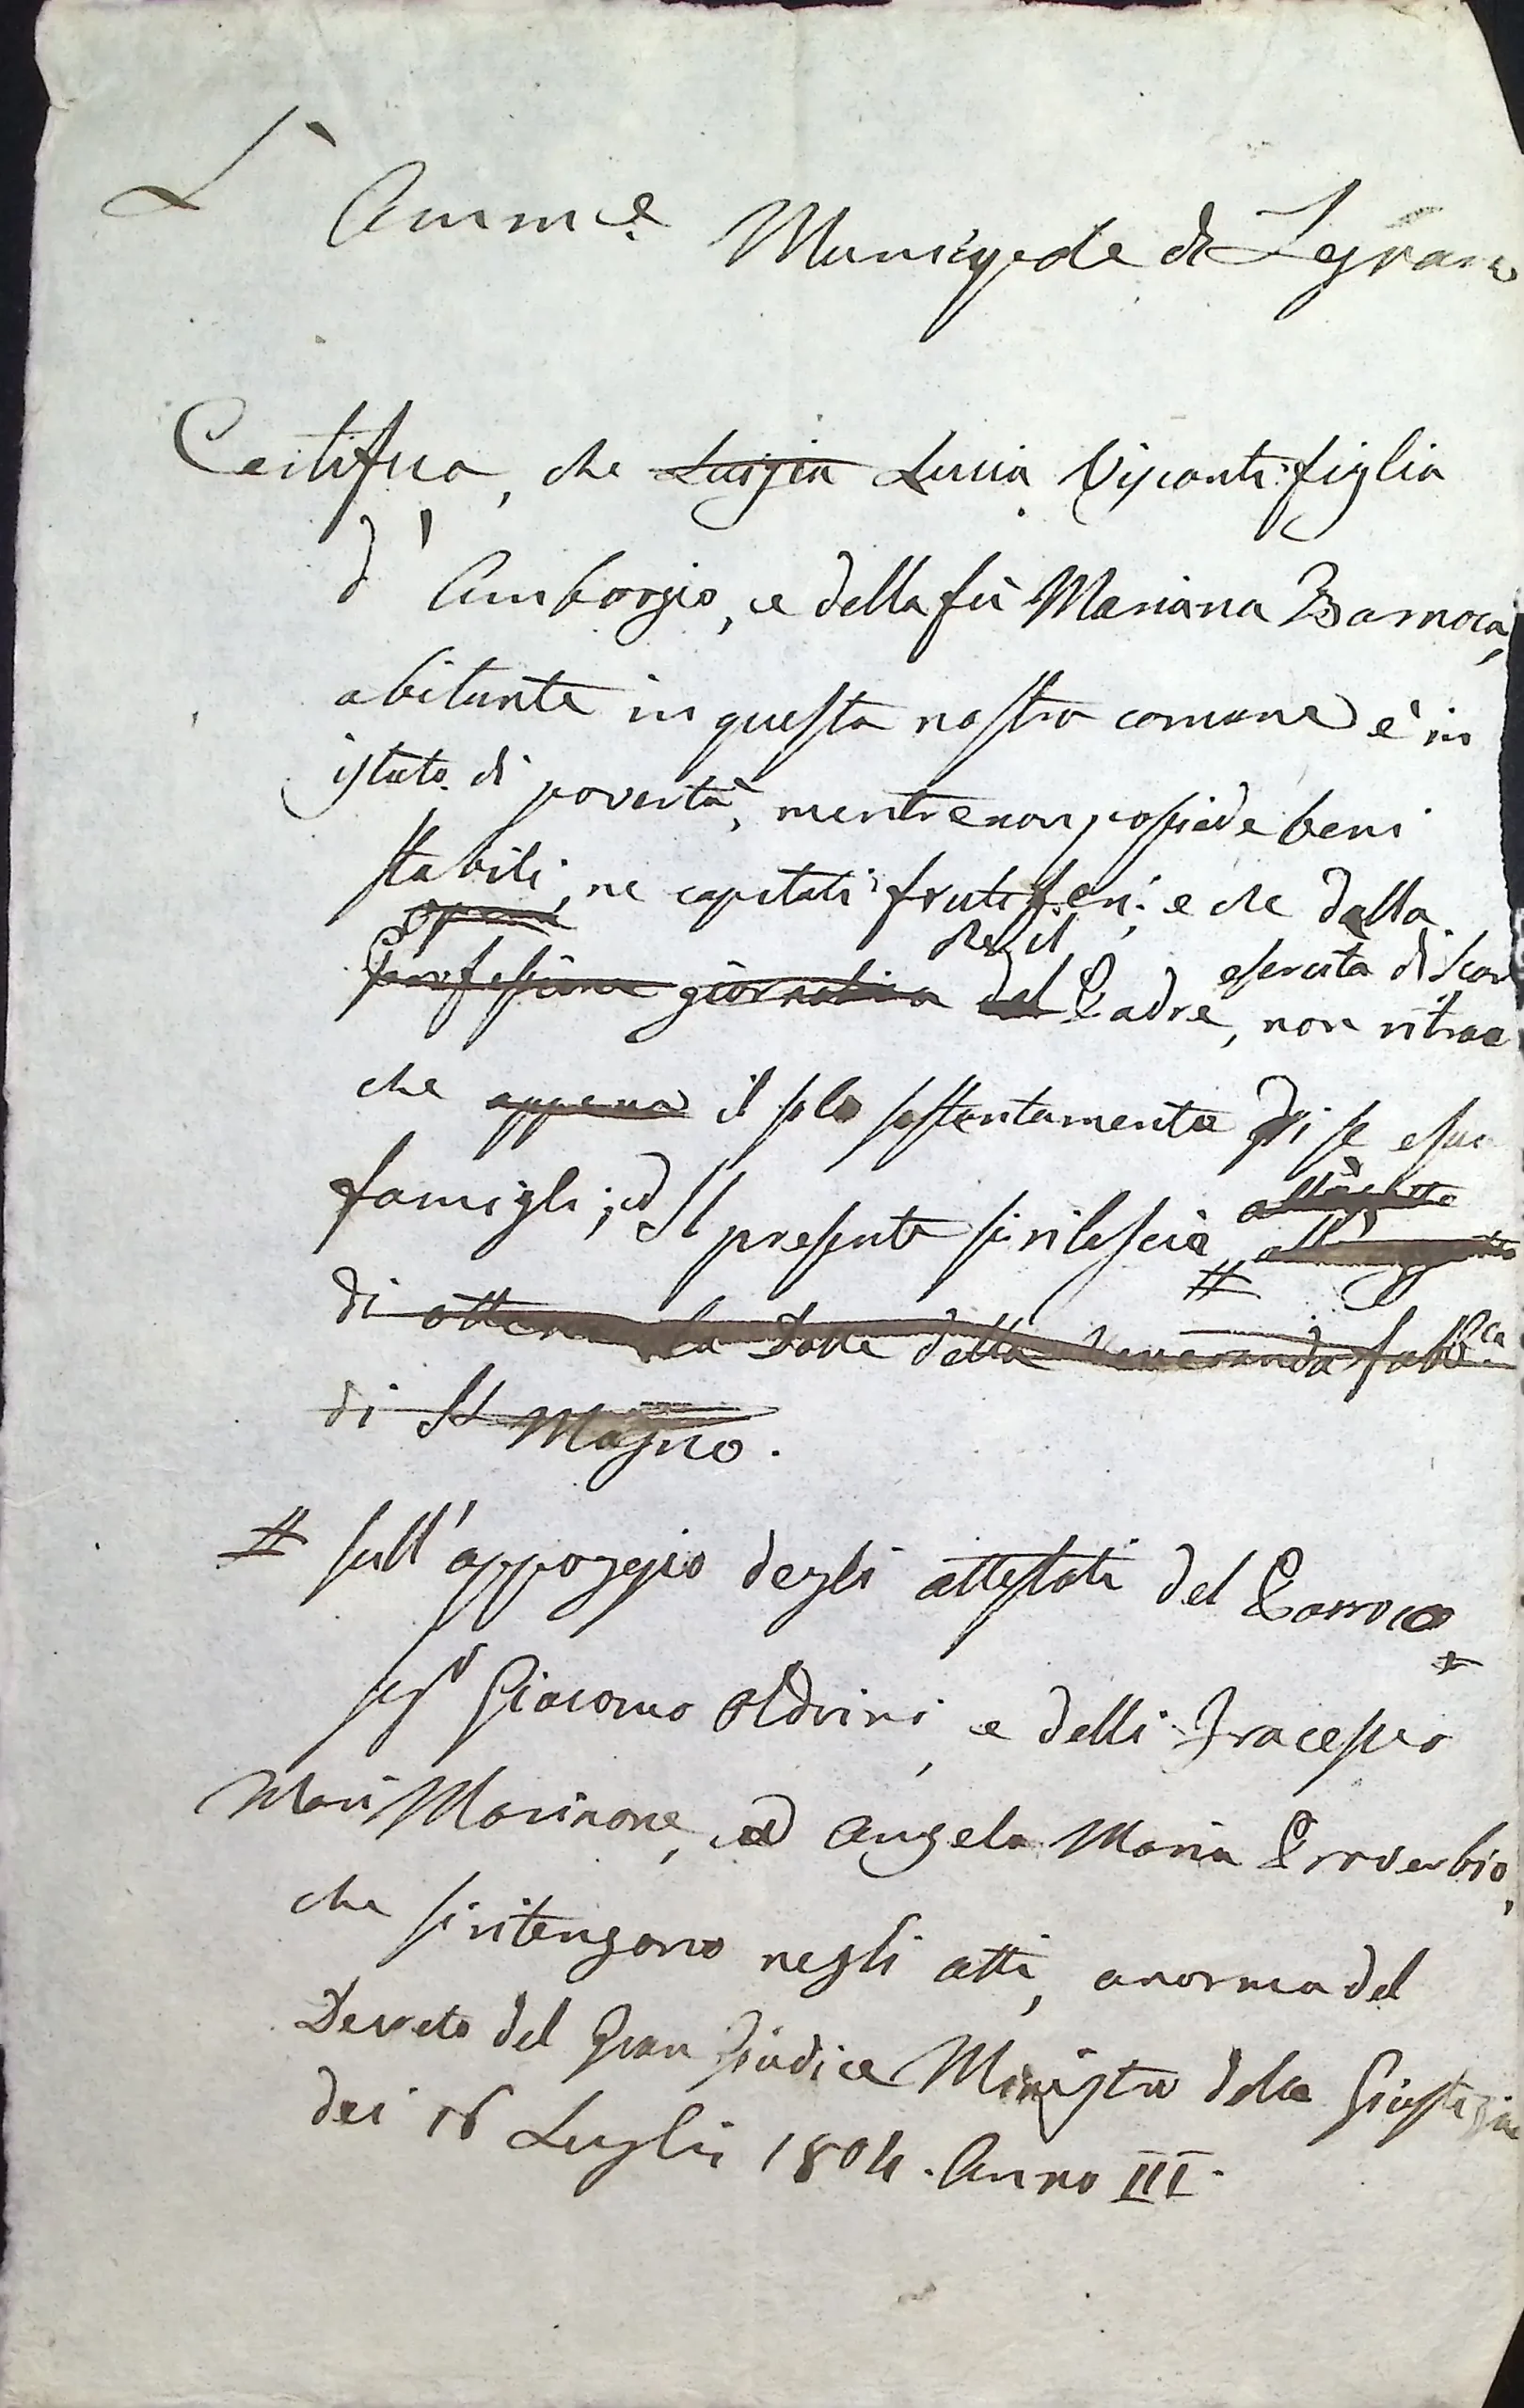 L' Amm.e Municipale di Legnano
Certifica, che Luigia Lucia Visconti figlia
d' Ambrogio, e della fù Mariana Barnoca,
abitante in questa nostra comune è in
istato di povertà, mentre non possiede beni
stabili, ne capitali frutiferi, e che dalla
opera che il esercita di scar
professione giornaliera del Padre, non ritrae
che appena il solo sostentamento di se e sua
famigli; ed Il presente si rilascia #
di ottenere la Dotte della Veneranda fabb.ca
di St Magno.
# sull' appoggio degli attestati del Parroco
sig.r Giacomo Oldrini, e delli Francesco
Mari Marinone, ed Angela Maria Proverbio,
che si ritengono negli atti, a norma del
Decreto del Gran Giudice Ministro della Giustizia
dei 16 Luglio 1804. Anno III.